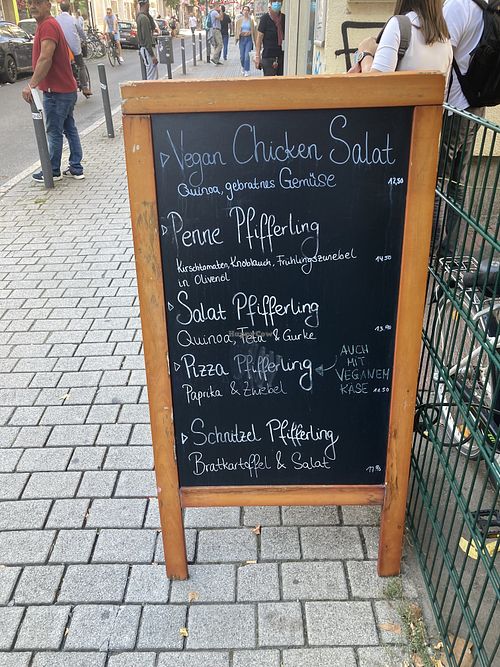 Vegan Chicken Salat
Quinoa, gebratnes Gemüse 12,50
Penne Pfifferling
Kirschtomaten, Knoblauch, Frühlingszwiebel 14,50
in Olivenöl
Salat Pfifferling
Quinoa, Feta & Gurke 13,90
Pizza Pfifferling
Paprika & Zwiebel 11,50
AUCH
MIT
VEGANEM
KÄSE
Schnitzel Pfifferling
Bratkartoffel & Salat